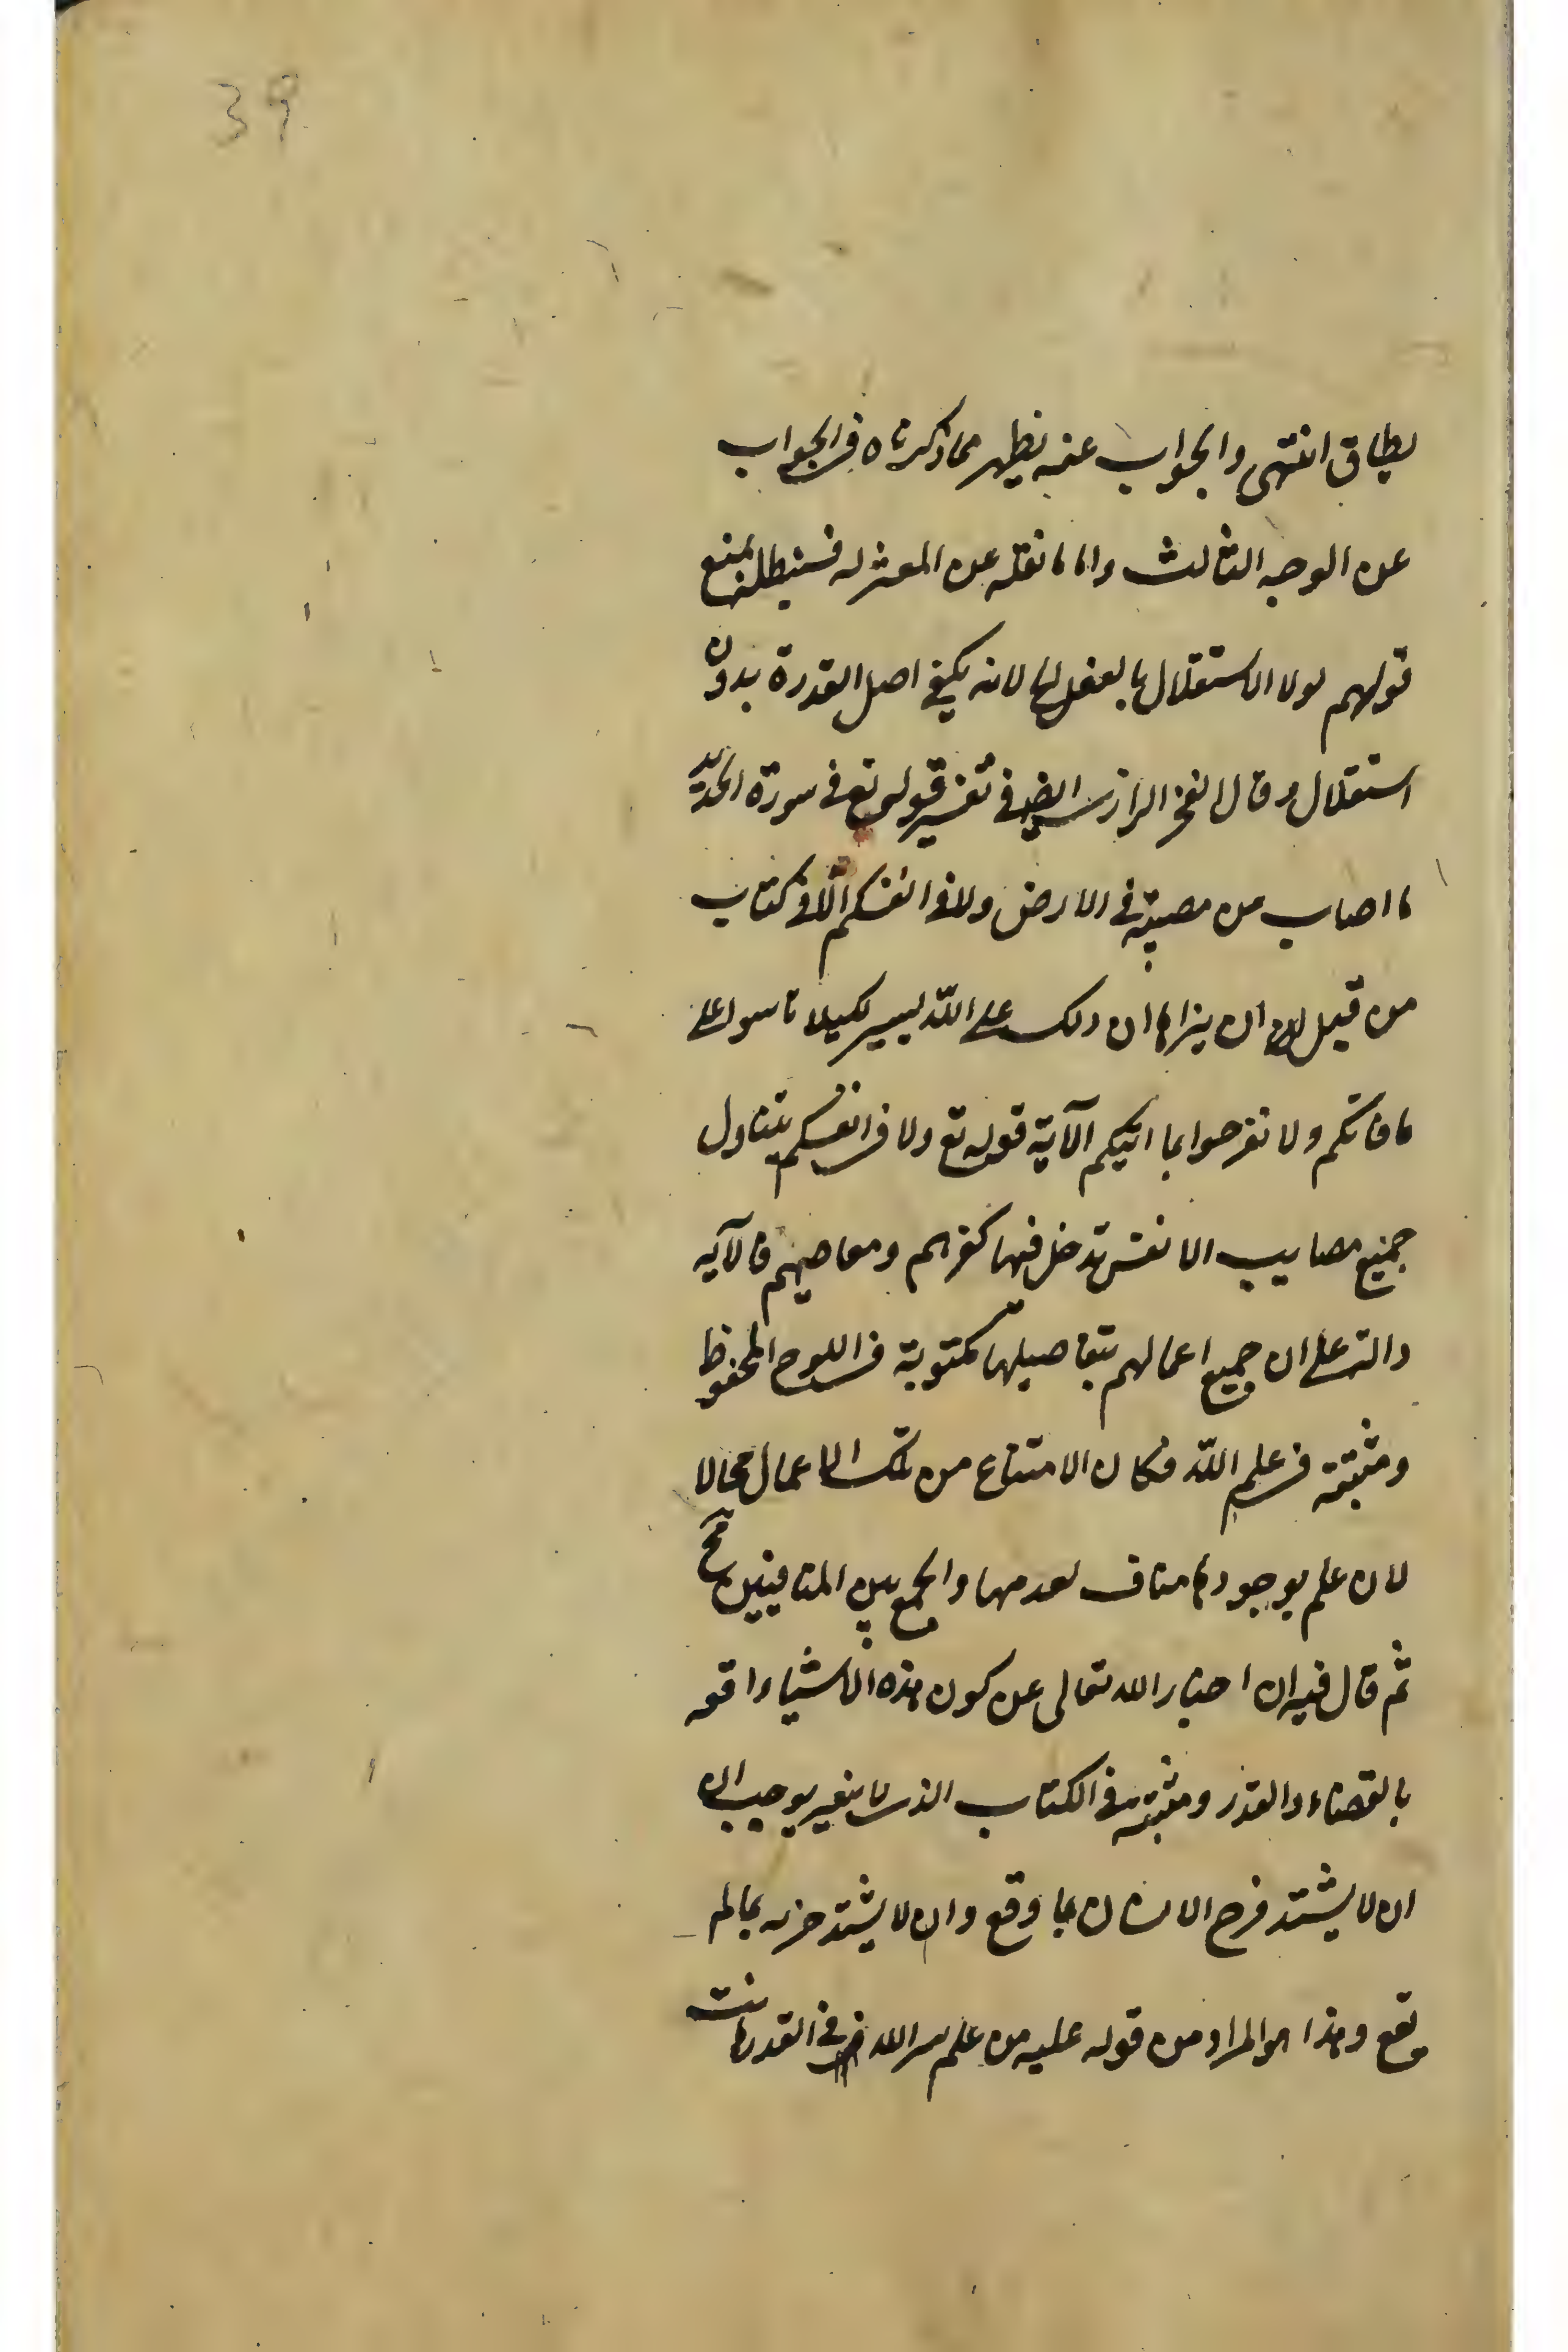 39
يطاق انتهى والجواب عنه يظهر مما ذكرناه في الجواب
عن الوجه الثالث واما ما نقله عن المعتزلة فنبطله بمنع
قولهم لولا الاستقلال بالفعل لانه يكفي اصل القدرة بدون
استقلال وقال الفخر الرازي ايضا في تفسير قوله تع في سورة الحديد
ما اصاب من مصيبة في الارض ولا في انفسكم الا في كتاب
من قبل ان نبراها ان ذلك على الله يسير لكيلا تاسوا على
ما فاتكم ولا تفرحوا بما اتيكم الآية قوله تع ولا في انفسكم يتناول
جميع مصايب الانفس تدخل فيها كفرهم ومعاصيهم فالآية
دالة على ان جميع اعمالهم بتفاصيلها مكتوبة في اللوح المحفوظ
ومثبتة في علم الله فكان الامتناع من تلك الاعمال محالا
لان علم بوجودها مناف لعدمها والجمع بين المتنافيين مح
ثم قال فيه ان اخبار الله تعالى عن كون هذه الاشياء واقعة
بالقضاء والقدر ومثبتة في الكتاب الذي لا يتغير يوجب ان
ان لا يشتد فرح الانسان بما وقع وان لا يشتد حزنه بما لم
يقع وهذا هو المراد من قوله عليه من علم سر الله في القدر هانت